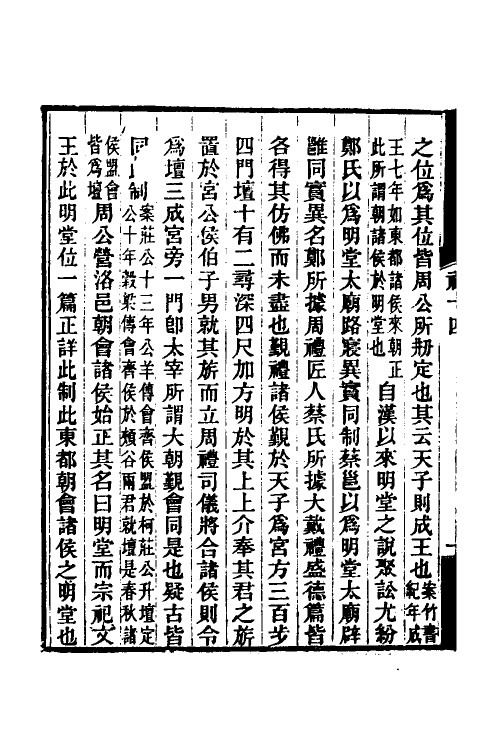 之位爲其位皆周公所刱定也其云天子則成王也案竹書紀年成
王七年如東都諸侯來朝正此所謂朝諸侯於明堂也自漢以來明堂之說聚訟尤紛
鄭氏以爲明堂太廟路寢異實同制蔡邕以爲明堂太廟辟
雝同實異名鄭所據周禮匠人蔡氏所據大戴禮盛德篇皆
各得其仿佛而未盡也覲禮諸侯覲於天子爲宮方三百步
四門壇十有二尋深四尺加方明於其上上介奉其君之旂
置於宮公侯伯子男就其旂而立周禮司儀將合諸侯則令
爲壇三成宮旁一門卽太宰所謂大朝覲會同是也疑古皆
同此制案莊公十三年公羊傳會齊侯盟於柯莊公升壇定公十年穀梁傳會齊侯於頰谷兩君就壇是春秋諸
侯盟會皆爲壇周公營洛邑朝會諸侯始正其名曰明堂而宗祀文
王於此明堂位一篇正詳此制此東都朝會諸侯之明堂也
禮十四